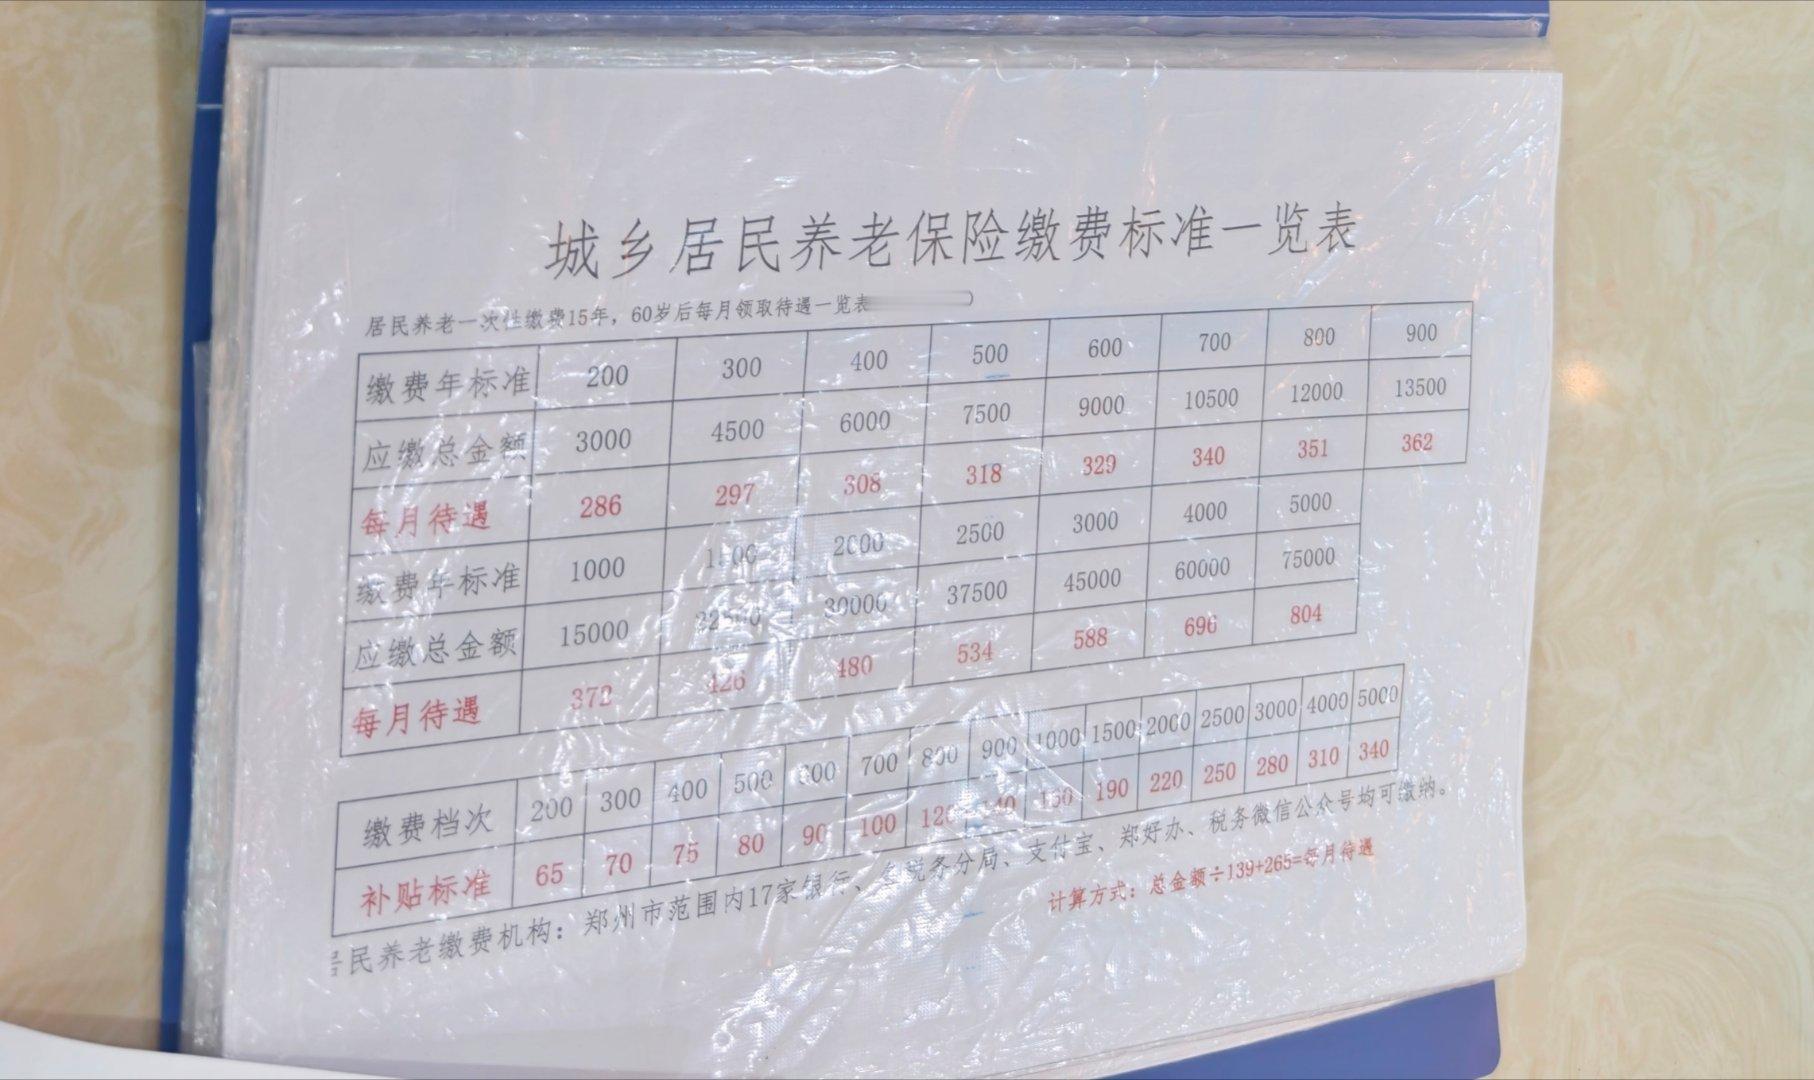 城乡居民养老保险缴费标准一览表
居民养老一次性缴费15年，60岁后每月领取待遇一览表
缴费年标准 200 300 400 500 600 700 800 900
应缴总金额 3000 4500 6000 7500 9000 10500 12000 13500
每月待遇 286 297 308 318 329 340 351 362
缴费年标准 1000 1500 2000 2500 3000 4000 5000
应缴总金额 15000 22500 30000 37500 45000 60000 75000
每月待遇 372 426 480 534 588 696 804
缴费档次 200 300 400 500 600 700 800 900 1000 1500 2000 2500 3000 4000 5000
补贴标准 65 70 75 80 90 100 120 140 160 190 220 250 280 310 340
居民养老缴费机构：郑州市范围内17家银行、税务分局、支付宝、郑好办、税务微信公众号均可缴纳。
计算方式：总金额÷139+265=每月待遇